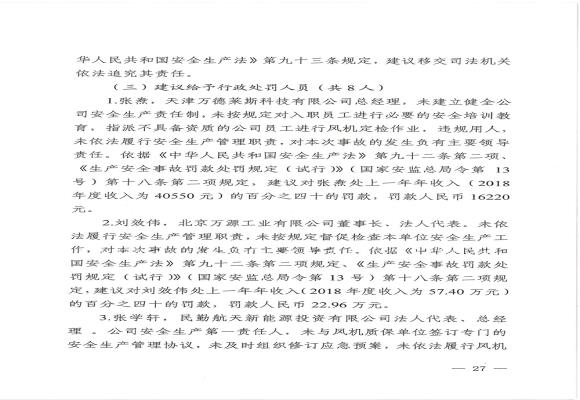 华人民共和国安全生产法》第九十三条规定，建议移交司法机关
依法追究其责任。
（三）建议给予行政处罚人员（共8人）
1.张焘，天津万德莱斯科技有限公司总经理，未建立健全公
司安全生产责任制，未按规定对入职员工进行必要的安全培训教
育，指派不具备资质的公司员工进行风机定检作业，违规用人，
未依法履行安全生产管理职责，对本次事故的发生负有主要领导
责任。依据《中华人民共和国安全生产法》第九十二条第二项、
《生产安全事故罚款处罚规定（试行）》（国家安监总局令第 13
号）第十八条第二项规定，建议对张焘处上一年年收入（2018
年度收入为 40550 元）的百分之四十的罚款，罚款人民币 16220
元。
2.刘效伟，北京万源工业有限公司董事长、法人代表。未依
法履行安全生产管理职责，未按规定督促检查本单位安全生产工
作，对本次事故的发生负有主要领导责任。依据《中华人民共和
国安全生产法》第九十二条第二项规定、《生产安全事故罚款处
罚规定（试行）》（国家安监总局令第 13 号）第十八条第二项规
定，建议对刘效伟处上一年年收入（2018 年度收入为 57.40 万元）
的百分之四十的罚款，罚款人民币 22.96 万元。
3.张学轩，民勤航天新能源投资有限公司法人代表、总经
理。公司安全生产第一责任人，未与风机质保单位签订专门的
安全生产管理协议，未及时组织修订应急预案，未依法履行风机
— 27 —